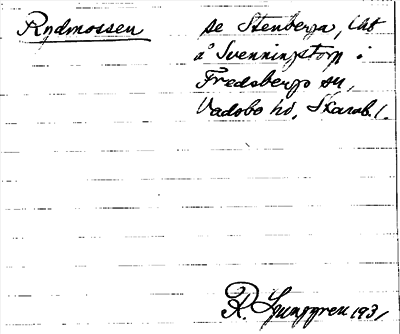 Rydmossen se Stenberga, lht
å Svenningstorp i
Fredsbergs sn,
Vadsbo hd, Skarab. l.
R. Ljunggren 1931